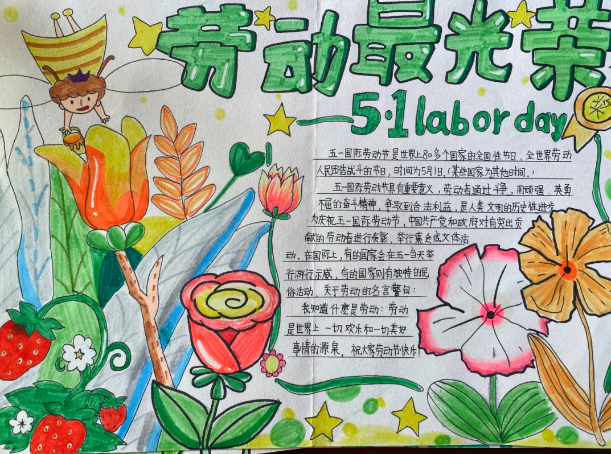 劳动最光荣
5·1 labor day
五一国际劳动节是世界上80多个国家的全国性节日，全世界劳动
人民团结战斗的节日，时间为5月1日，(某些国家为其他时间，)
五一国际劳动节具有重要意义，劳动者通过斗争，用顽强、英勇
不屈的奋斗精神，争取到合法利益，是人类文明的历史性进步
为庆祝五一国际劳动节，中国共产党和政府对有突出贡
献的劳动者进行表彰，举行集会或文体活
动，在国际上，有的国家会在五一当天举
行游行示威，有的国家则有独特的民
俗活动。关于劳动的名言警句：
我知道什麽是劳动：劳动
是世界上一切欢乐和一切美好
事情的源泉，祝大家劳动节快乐！